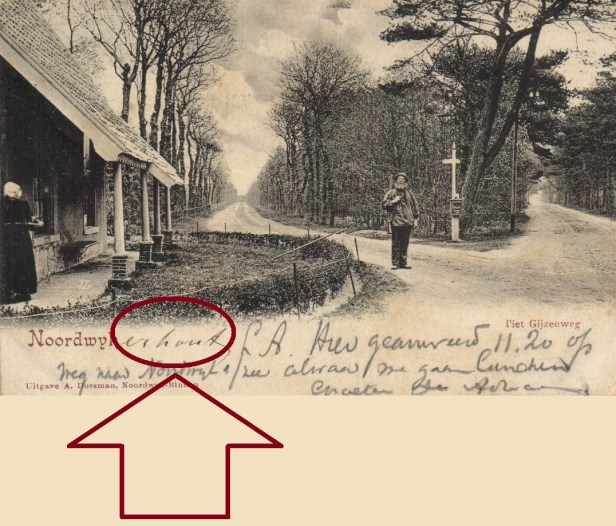 Noordwykerhout
Piet Gijzenweg
L. A. Hier gearriveerd 11.20 op
weg naar Noordwijk a/zee alwaar we gaan lunchen
Groeten
Uitgave A. Dorsman, Noordwijk-Binnen